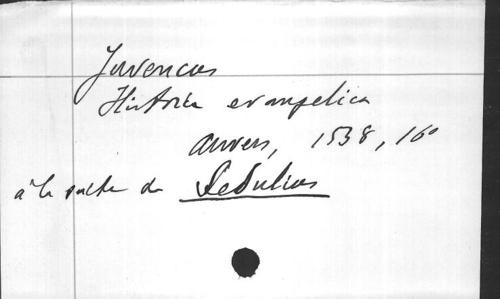 Juvencus
Historia evangelica
Anvers, 1538, 16°
à la suite de Sedulius